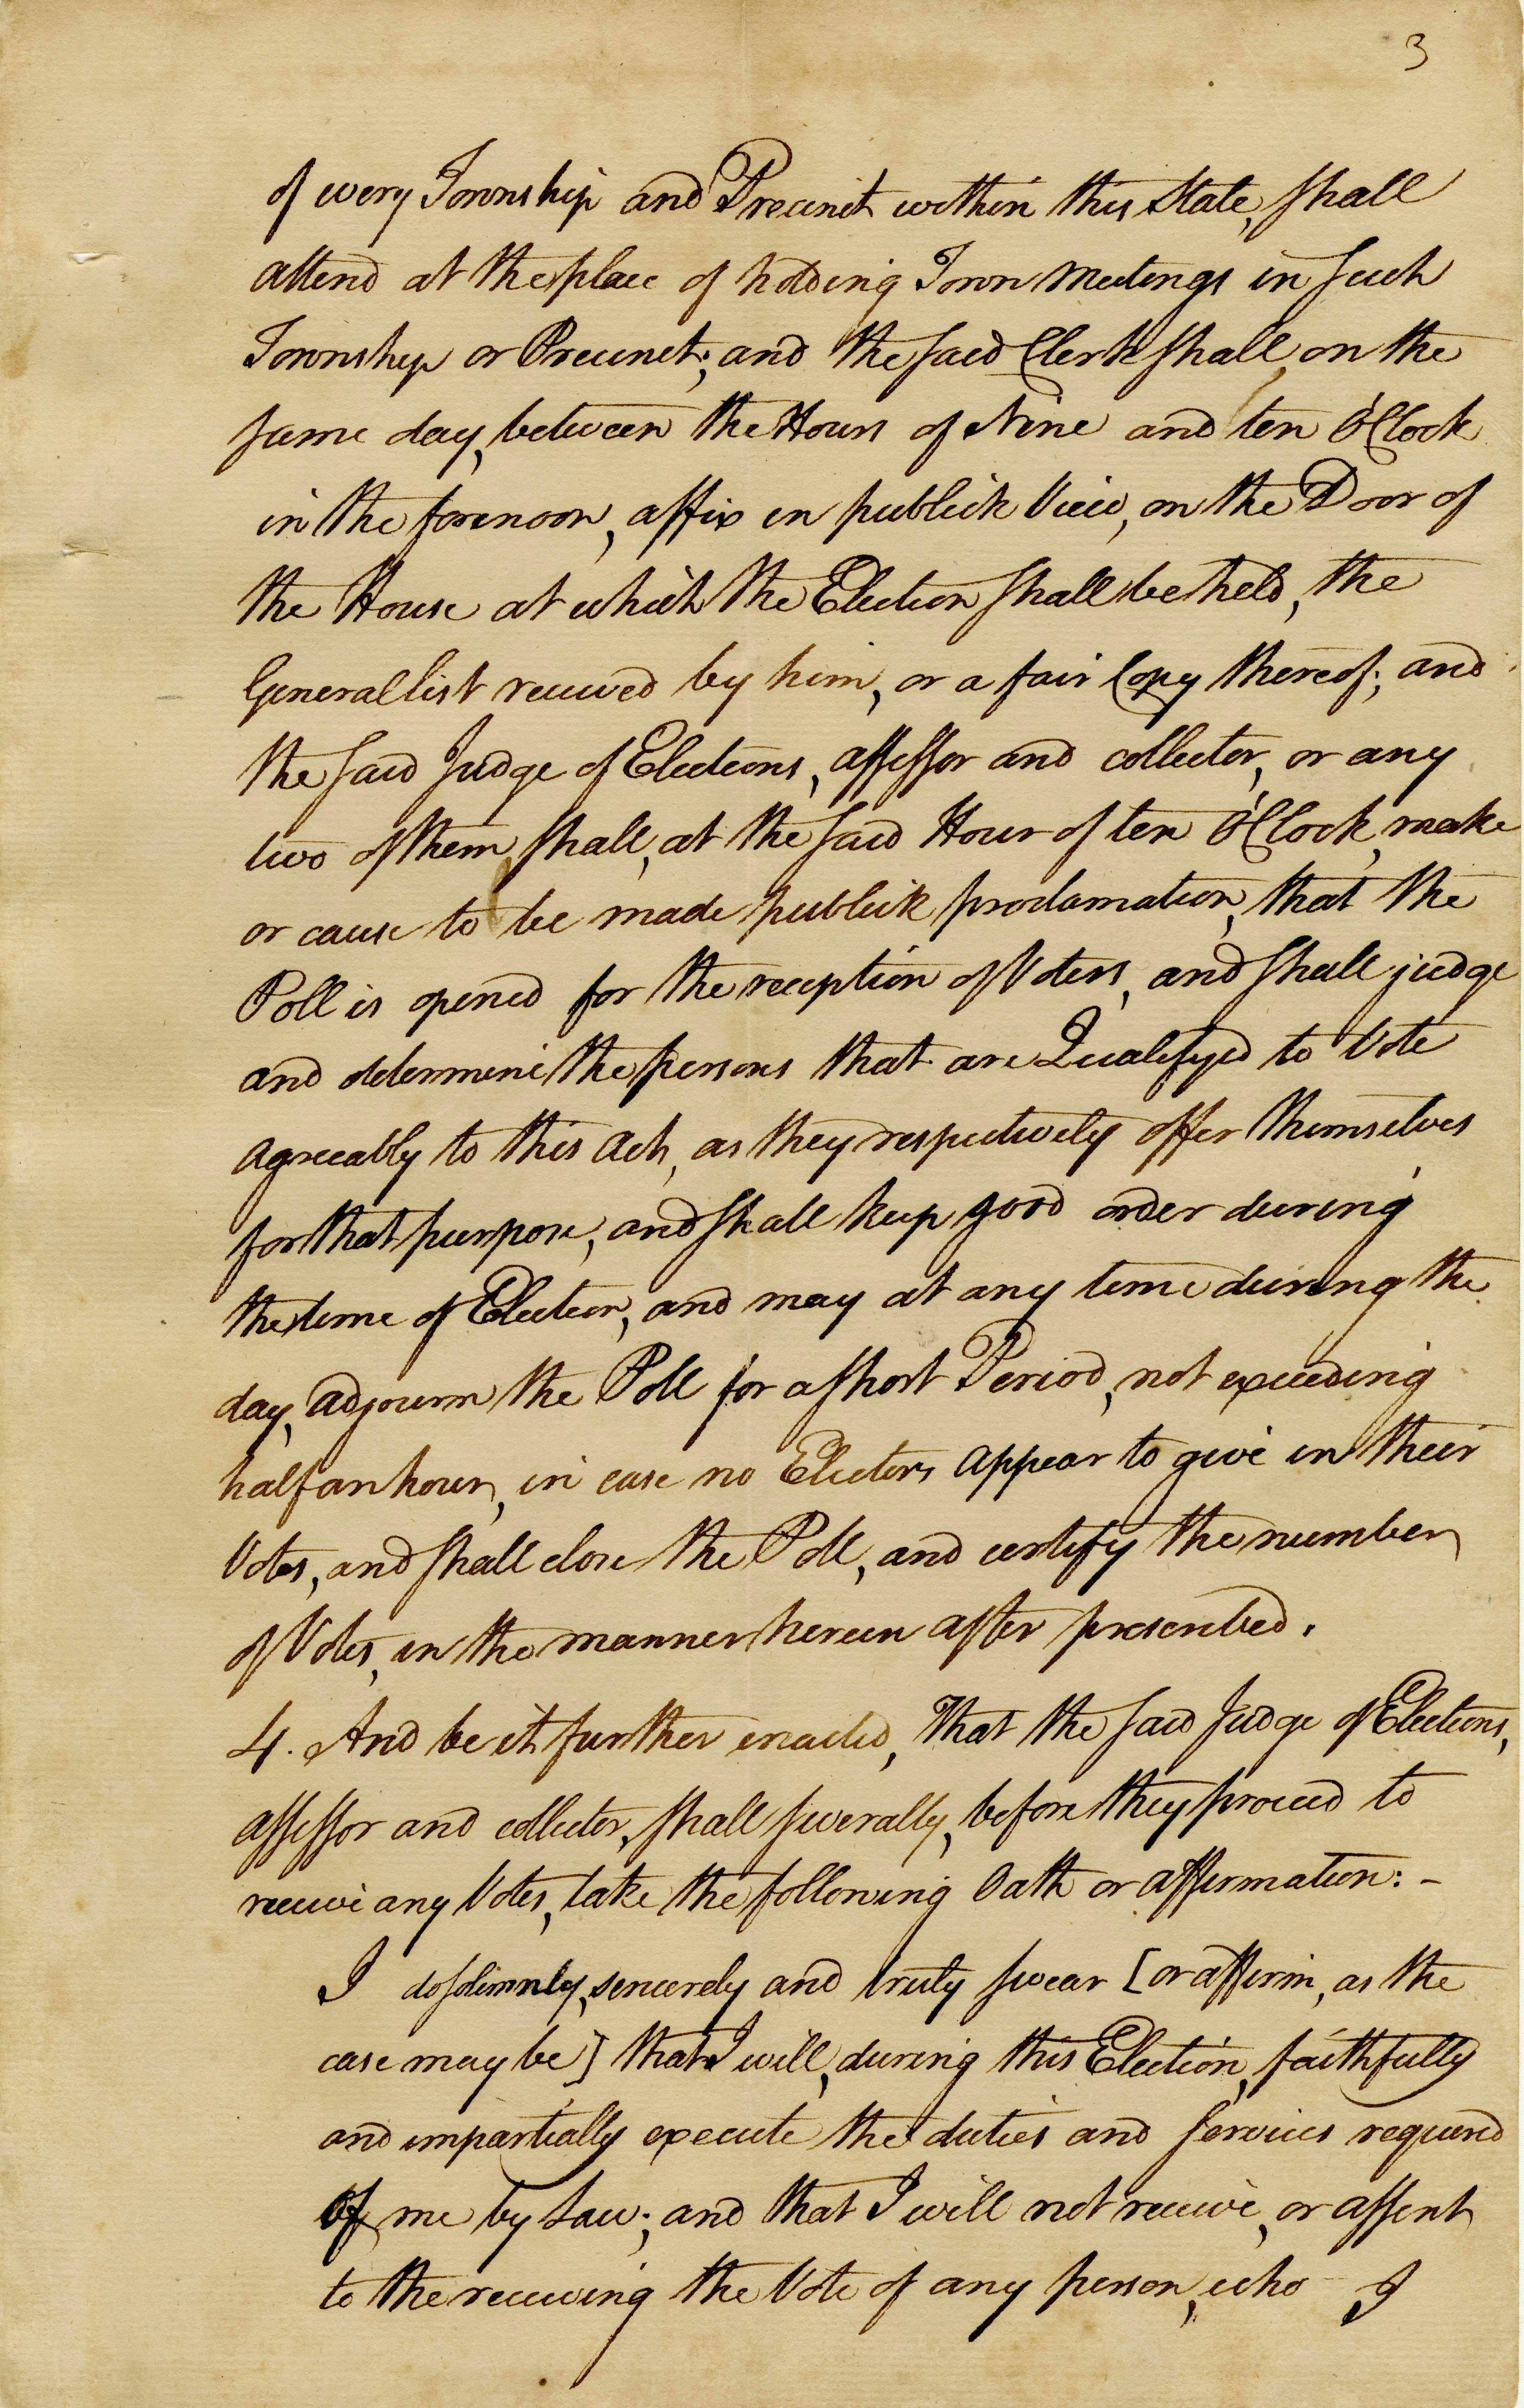 3
of every Township and Precinct within this State, shall
attend at the place of holding Town Meetings in such
Township or Precinct; and the said Clerk shall, on the
same day, between the Hours of Nine and ten O'Clock
in the forenoon, affix in publick View, on the Door of
the House at which the Election shall be held, the
General list received by him, or a fair Copy thereof; and
the said Judge of Elections, assessor and collector, or any
two of them, shall, at the said Hour of ten O'Clock, make
or cause to be made publick proclamation, that the
Poll is opened for the reception of Voters, and shall judge
and determine the persons that are Qualifyed to Vote
agreeably to this Act, as they respectively offer themselves
for that purpose, and shall keep good order during
the time of Election, and may at any time during the
day, adjourn the Poll for a short Period, not exceeding
half an hour, in case no Electors appear to give in their
Votes, and shall close the Poll, and certify the number
of Votes, in the manner herein after prescribed.
4. And be it further enacted, That the said Judge of Elections,
assessor and collector, shall severally, before they proceed to
receive any Votes, take the following Oath or affirmation: -
I do solemnly, sincerely and truly swear [or affirm, as the
case may be] that I will, during this Election, faithfully
and impartially execute the duties and services required
of me by Law; and that I will not receive, or assent
to the receiving the Vote of any person, who I